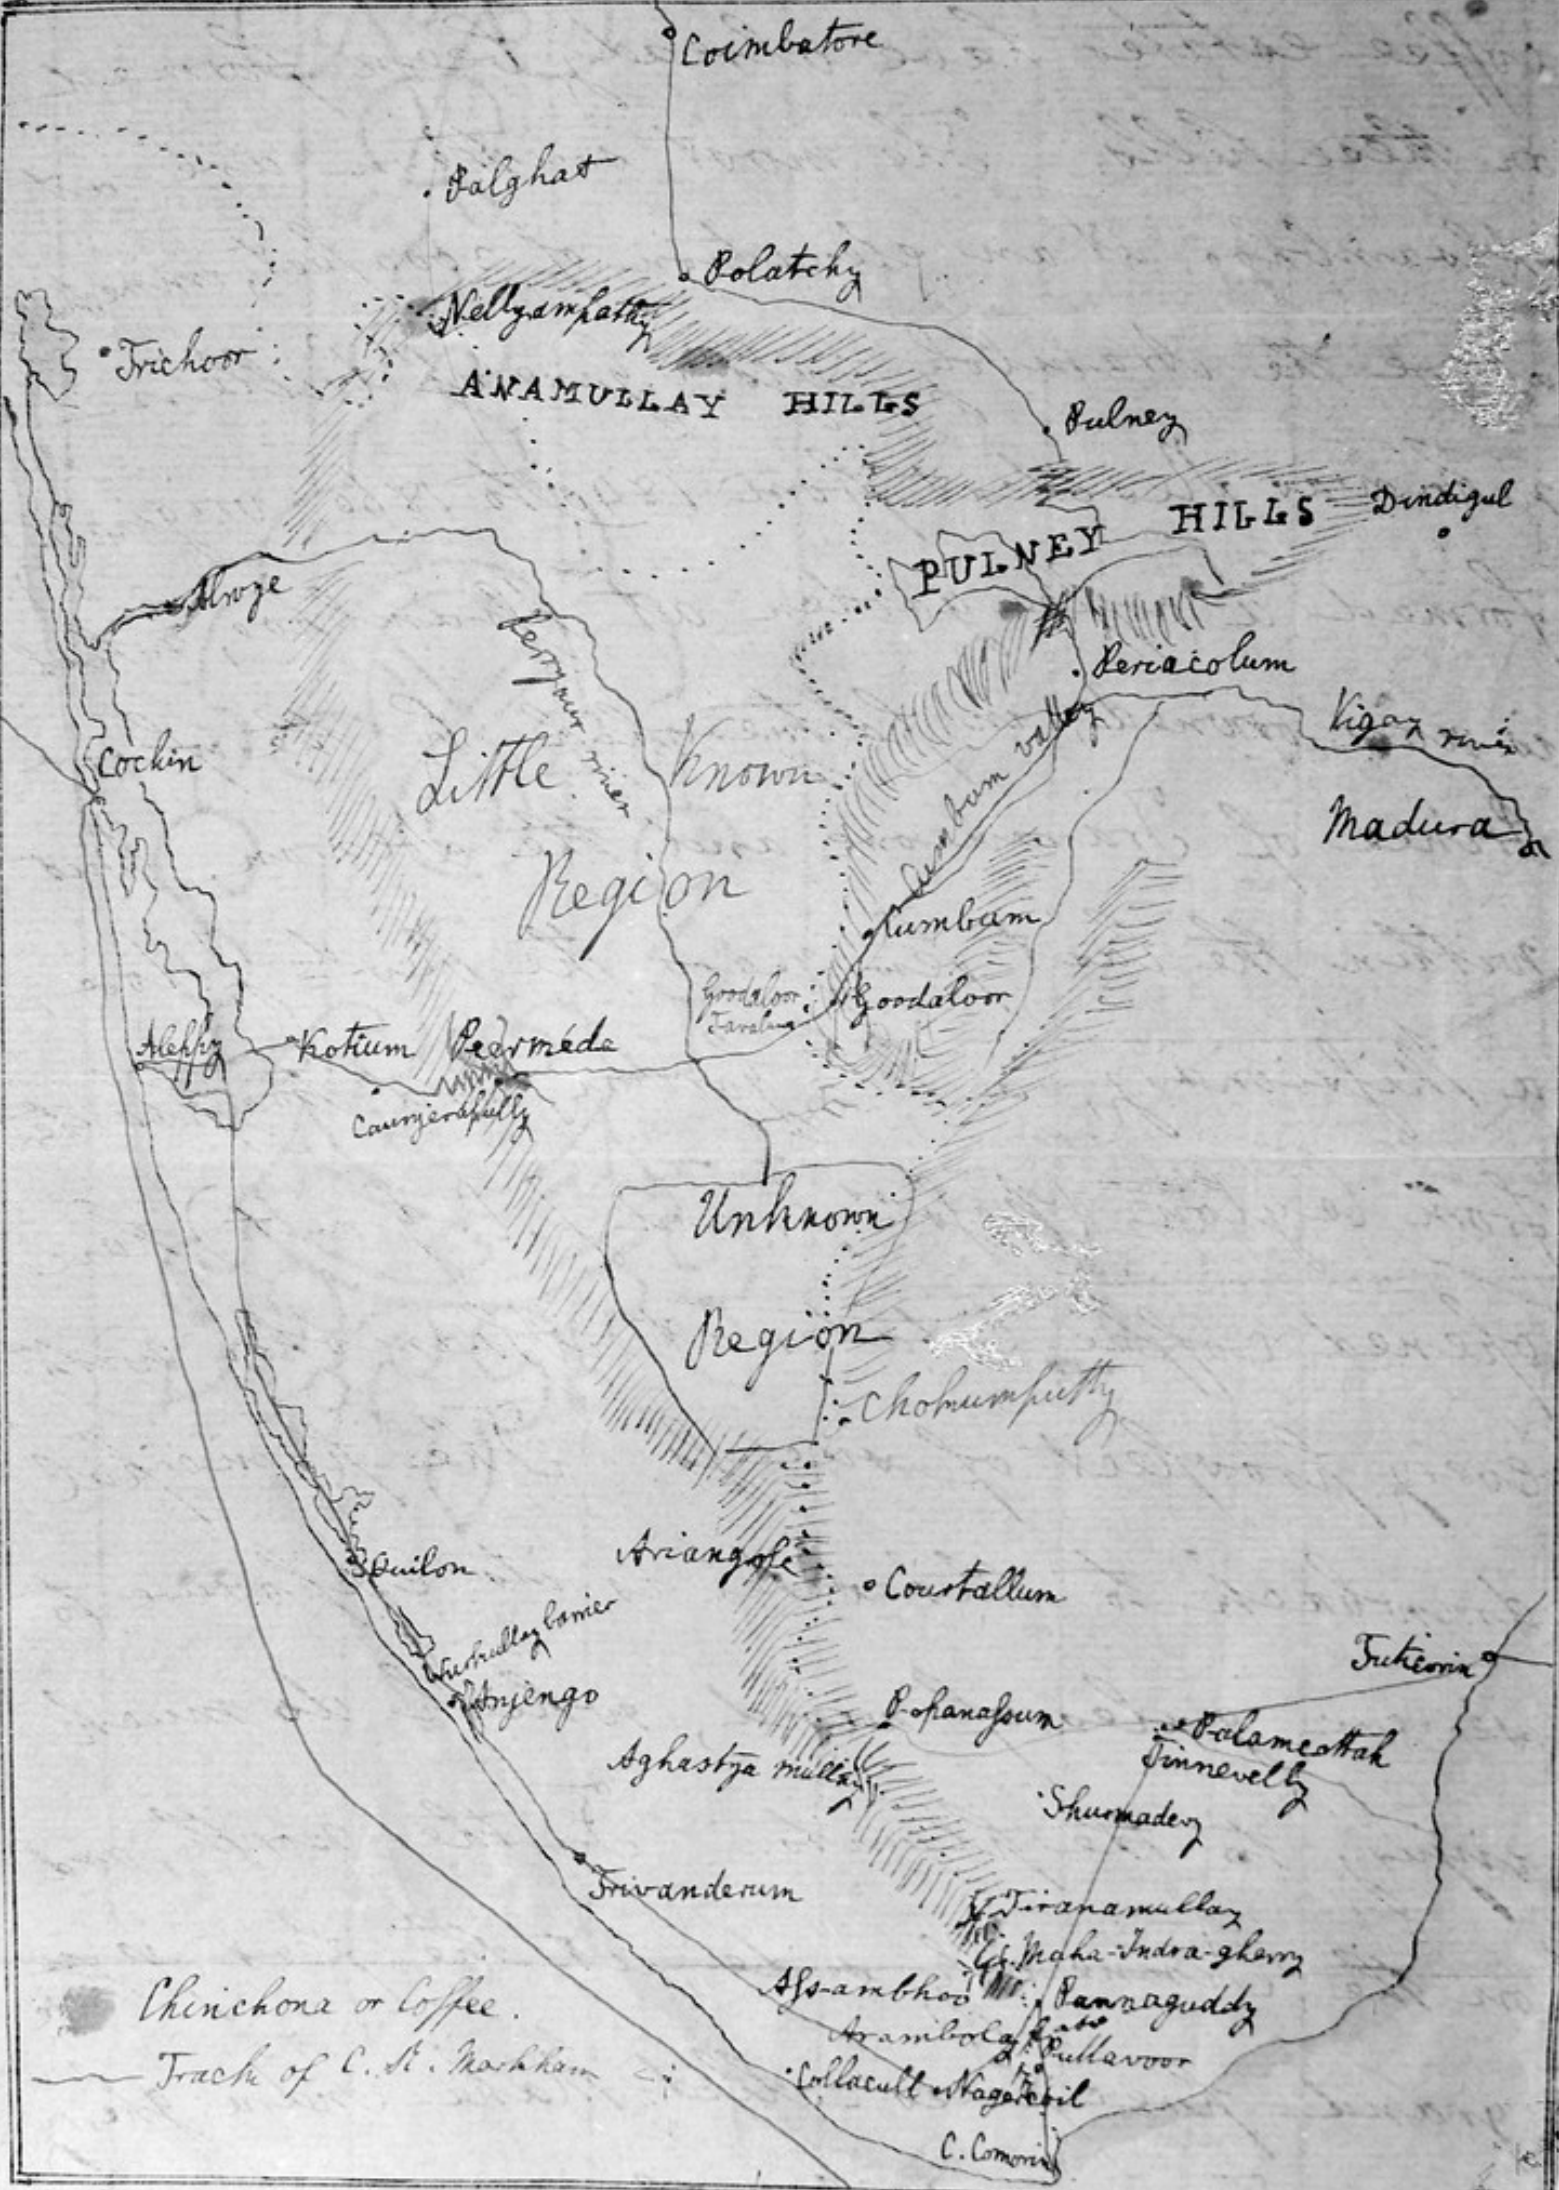 Coimbatore
Palghat
Polatchy
Nellyampathy
Trichoor
ANAMULLAY HILLS
Pulney
PULNEY HILLS
Dindigul
Alwye
Perryaur river
Periacolum
Vigay river
Cumbum valley
Cochin
Little Known
Region
Madura
Kumbum
Goodaloor
Goodaloor
Aleppy
Kotium
Peerméde
Caunjerapully
Unknown
Region
Chokumputty
Ariangole
Quilon
Courtallum
barrier
Anjengo
Tuticorin
Popanassum
Palamcottah
Tinnevelly
Aghastya mullay
Shurmadevy
Trivanderum
Tiranamullay
Maha-Indra-gherry
Ass-amboo
Pannaguddy
Aramboly
Pullavoor
Collacull
Nagercoil
C. Comorin
Chinchona or Coffee.
Track of C. R. Markham